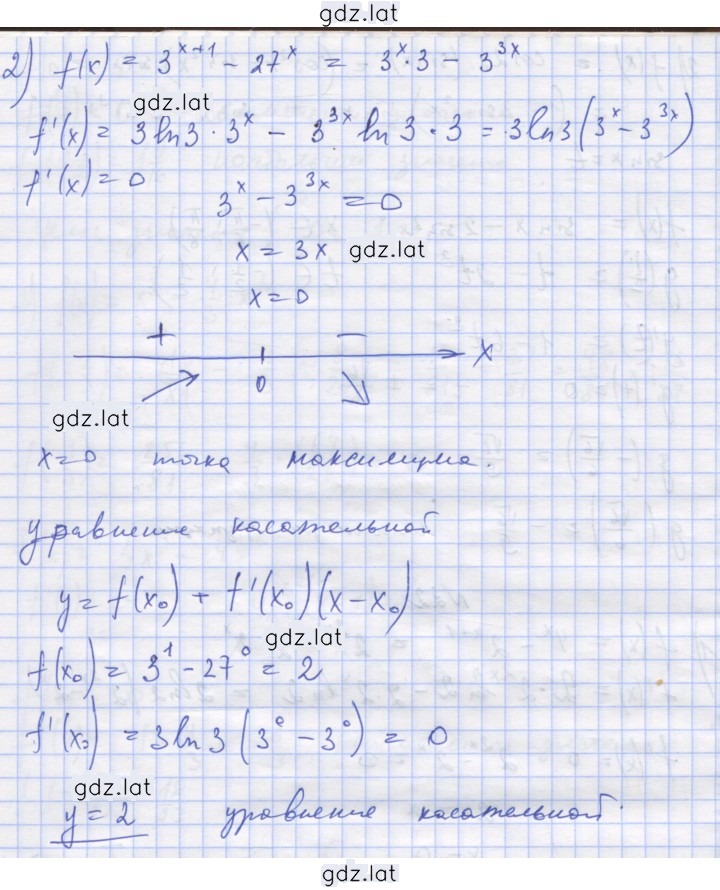 gdz.lat
2) f(x) = 3^{x+1} - 27^x = 3^x·3 - 3^{3x}
gdz.lat
f'(x) = 3ln3·3^x - 3^{3x} ln3·3 = 3ln3(3^x - 3^{3x})
f'(x) = 0
3^x - 3^{3x} = 0
x = 3x gdz.lat
x = 0
+ −
x
0
gdz.lat
x=0 точка максимума.
уравнение касательной
y = f(x₀) + f'(x₀)(x - x₀)
gdz.lat
f(x₀) = 3^1 - 27^0 = 2
f'(x₀) = 3ln3(3^0 - 3^0) = 0
gdz.lat
y = 2 уравнение касательной.
gdz.lat